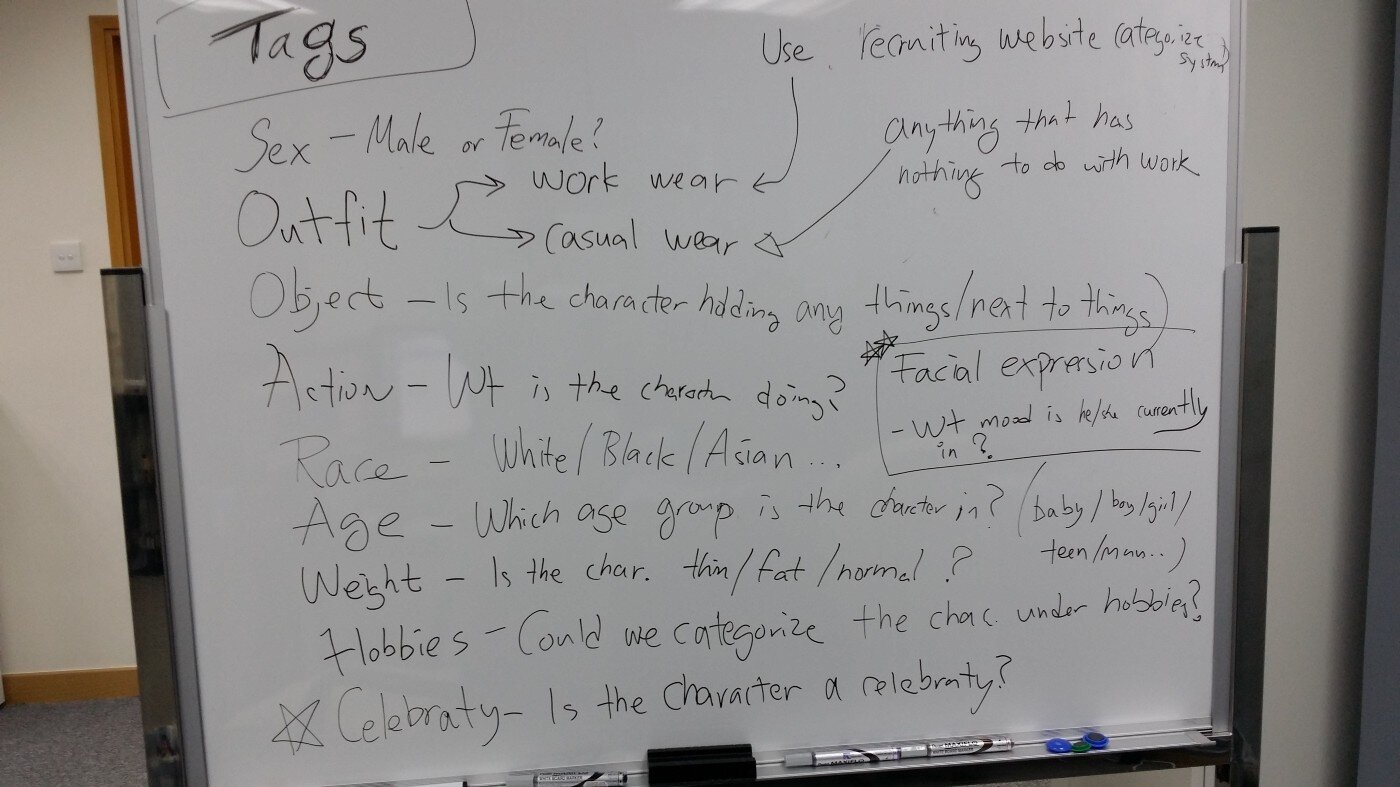 Tags
Use recruiting website categorize system?
Sex - Male or Female?
anything that has
nothing to do with work
Outfit
work wear
casual wear
Object - Is the character holding any things/next to things)
Facial expression
- Wt mood is he/she currently
in?
Action - Wt is the character doing?
Race - White/Black/Asian...
Age - Which age group is the charcter in? (baby/boy/girl/
teen/man..)
Weight - Is the char. thin/fat/normal?
Hobbies - Could we categorize the chac. under hobbies?
Celebraty - Is the character a celebraty?